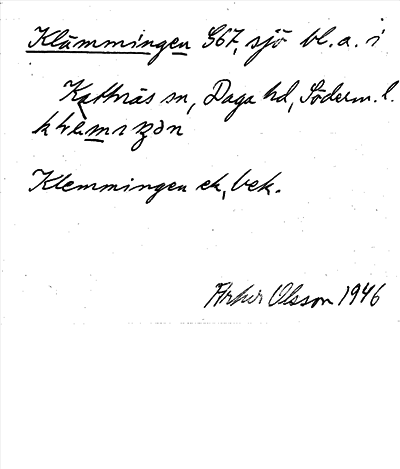 Klämmingen G67, sjö bl. a. i
Kattnäs sn, Daga hd, Söderm. l.
Klemmingen ek, bek.
Olsson 1946